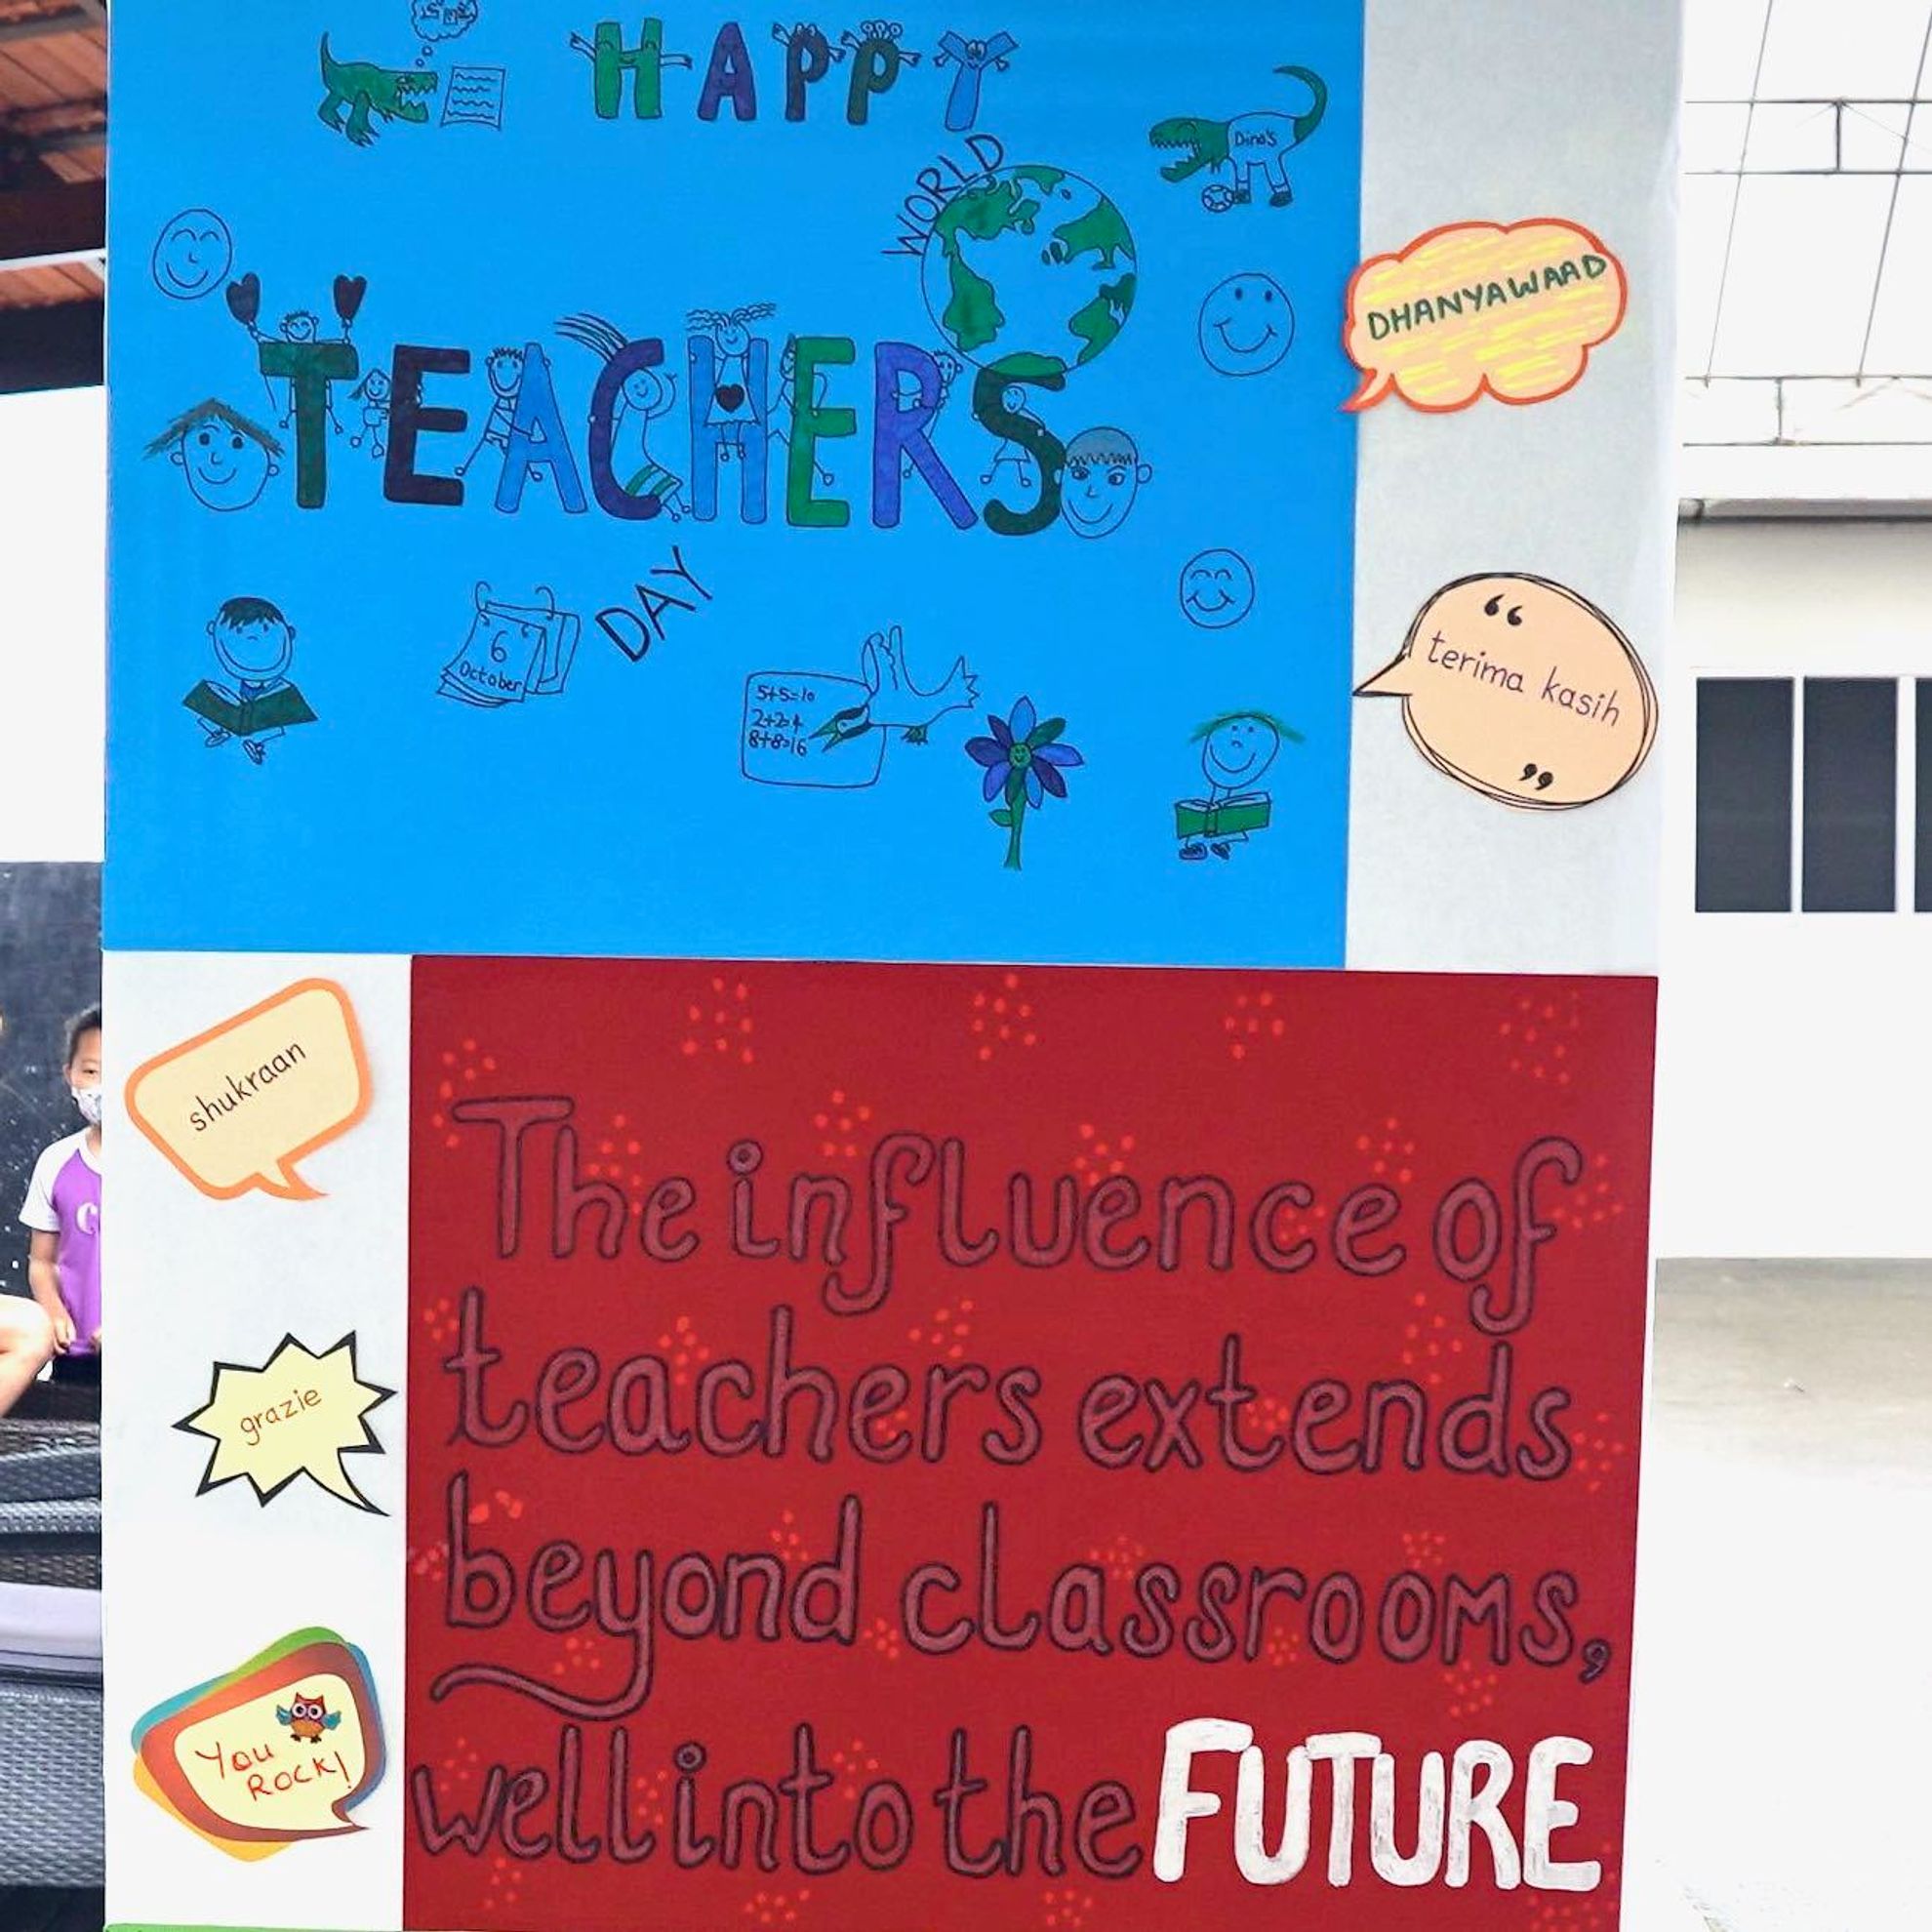 HAPPY
Dino's
WORLD
DHANYAWAAD
TEACHERS
DAY
6
October
5+5=10
2+2=4
8+8=16
“
terima kasih
”
shukraan
The influence of
teachers extends
beyond classrooms,
well into the FUTURE
grazie
You
ROCK!